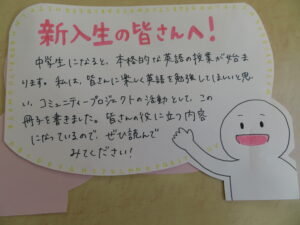 新入生の皆さんへ!
中学生になると、本格的な英語の授業が始ま
ります。私は、皆さんに楽しく英語を勉強してほしいと思
い、コミュニティープロジェクトの活動として、この
冊子を書きました。皆さんの役に立つ内容
になっているので、ぜひ読んで
みてください!